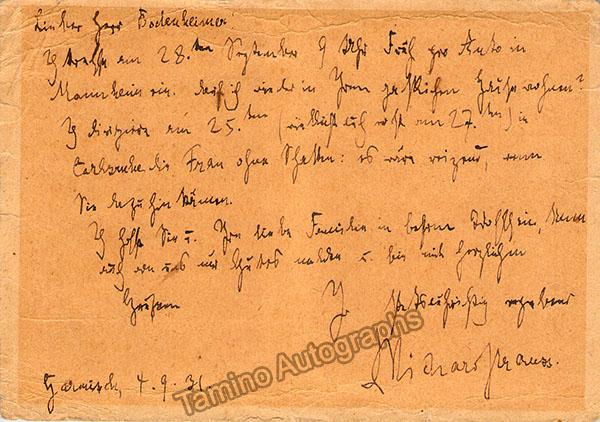 Lieber Herr Bodenheimer!
Ich treffe am 28.ten September 9 Uhr Früh per Auto in
Mannheim ein. Darf ich wieder in Ihrem gastlichen Hause wohnen?
Ich dirigiere am 25.ten (vielleicht auch erst am 27.ten) in
Carlsruhe die Frau ohne Schatten: es wäre reizend, wenn
Sie dazu hin kämen.
Ich hoffe Sie u. Ihre liebe Familie in bestem Wohlsein, kann
auch von uns nur Gutes melden u. bin mit herzlichen
Grüßen
Ihr stets aufrichtig ergebener
Richard Strauss.
Garmisch, 4. 9. 31.
Tamino Autographs